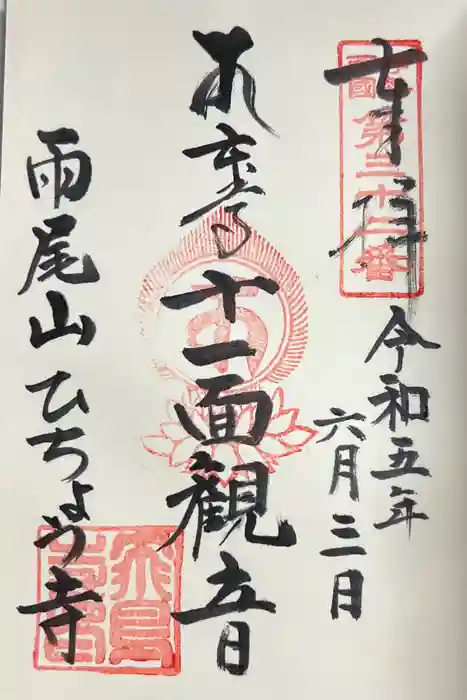 奉拝
第三十二番
令和五年
六月三日
本尊 十一面観音
雨尾山 ひちょう寺